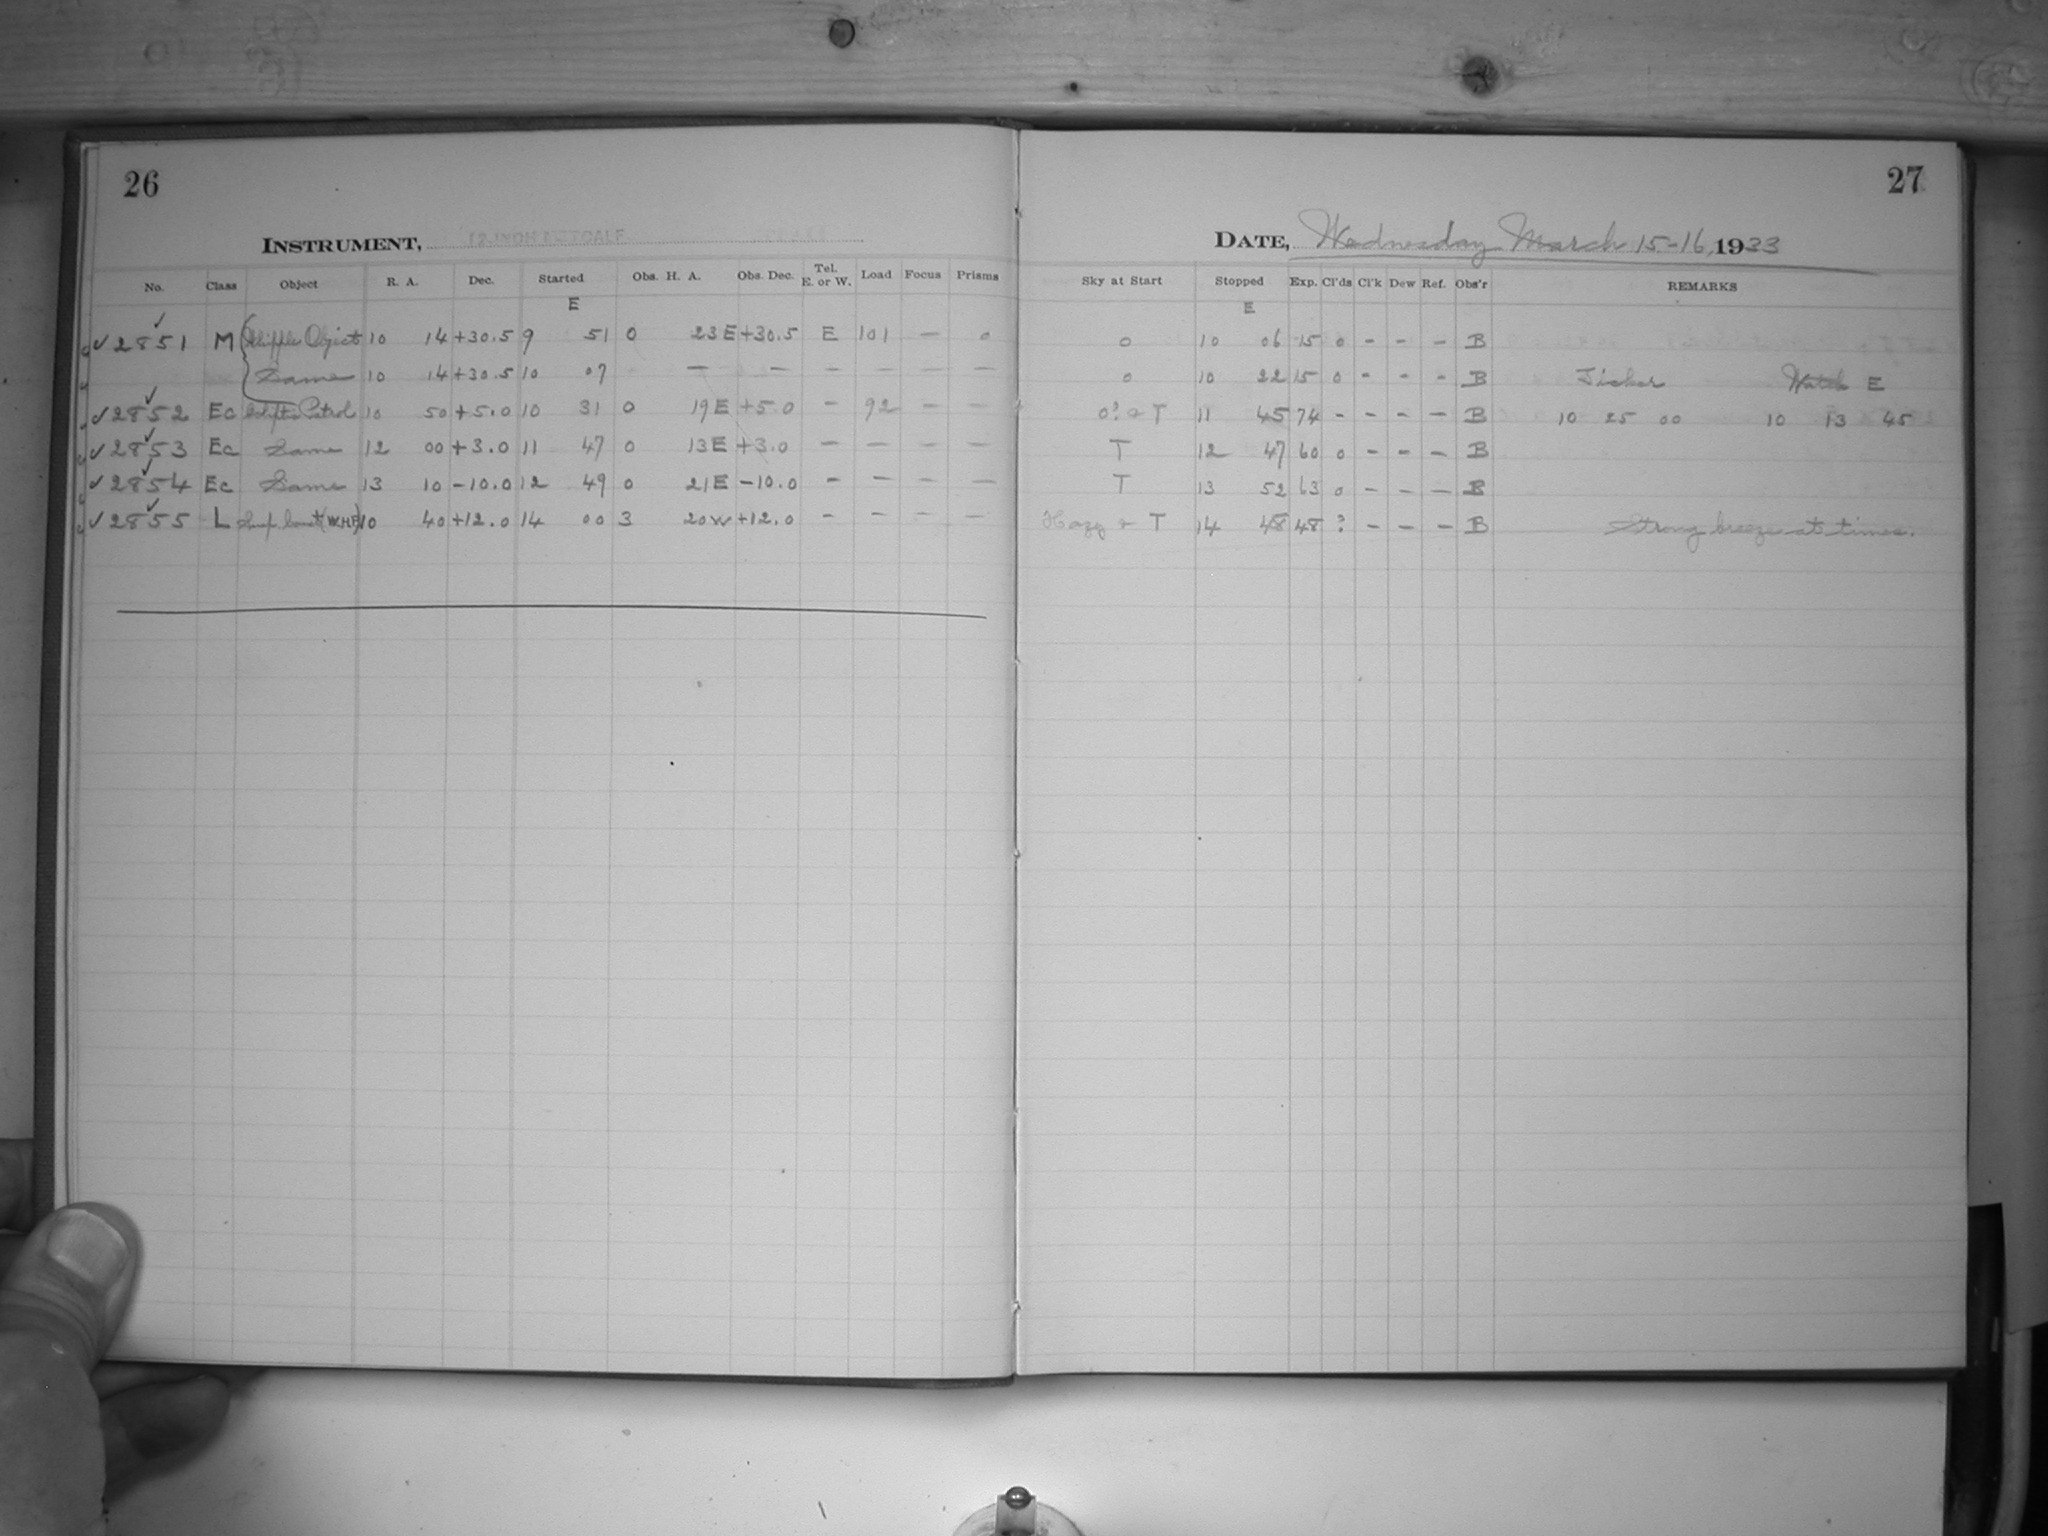 26
INSTRUMENT, 12-INCH METCALF
No. Class Object R. A. Dec. Started Obs. H. A. Obs. Dec. Tel. E. or W. Load Focus Prisms
E
✓ 2851 M Object 10 14 +30.5 9 51 0 23 E +30.5 E 101 — 0
Same 10 14 +30.5 10 07 — — — — — —
✓ 2852 Ec Ecliptic Patrol 10 50 +5.0 10 31 0 19 E +5.0 - 92 — —
✓ 2853 Ec Same 12 00 +3.0 11 47 0 13 E +3.0 — — — —
✓ 2854 Ec Same 13 10 -10.0 12 49 0 21 E -10.0 - — — —
✓ 2855 L (W.H.P) 10 40 +12.0 14 00 3 20 W +12.0 - - - —
27
DATE, Wednesday March 15-16, 1933
Sky at Start Stopped Exp. Cl'ds Cl'k Dew Ref. Obs'r REMARKS
E
0 10 06 15 0 - - - B
0 10 22 15 0 - - - B Ticker Watch E
0? & T 11 45 74 - - - - B 10 25 00 10 13 45
T 12 47 60 0 - - - B
T 13 52 63 0 - - - B
Hazy & T 14 48 48 ? - - - B Strong breeze at times.